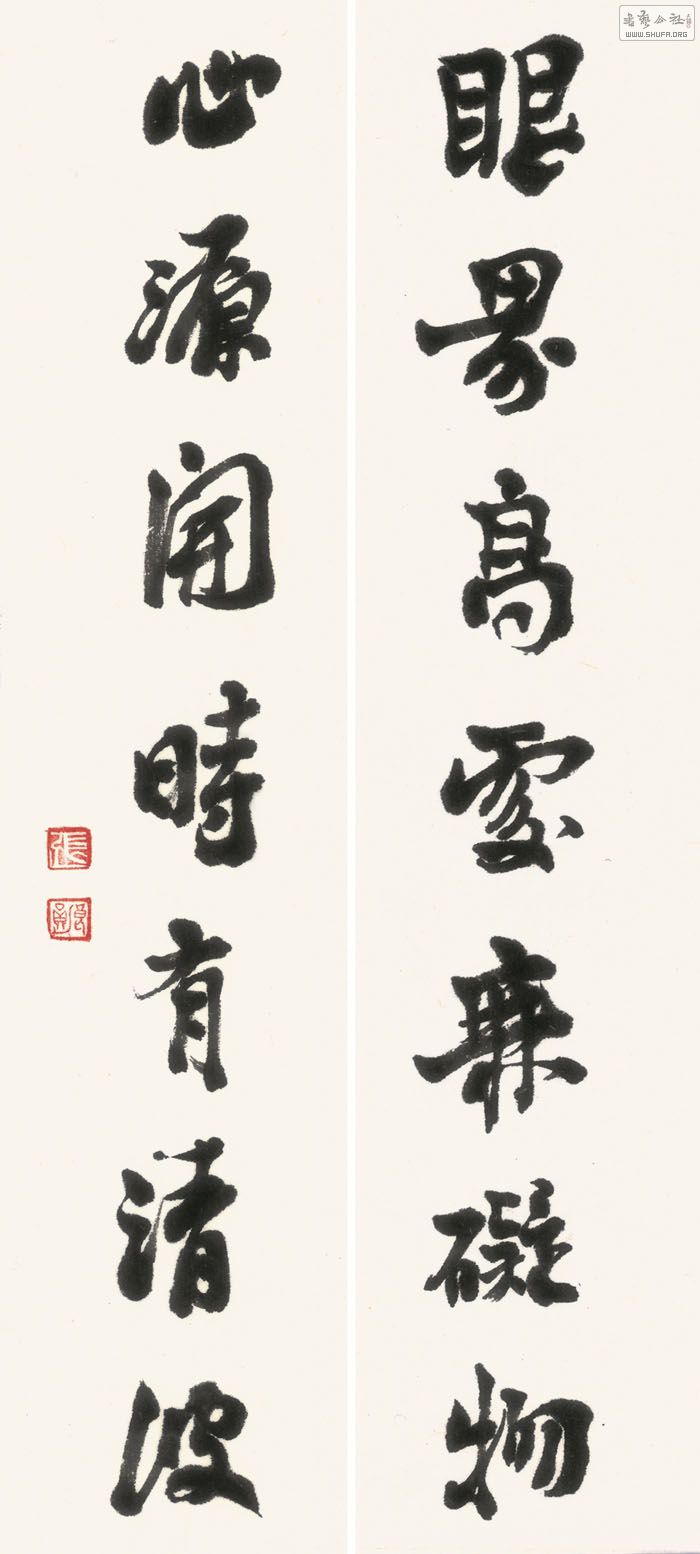 眼界高處無礙物
心源開時有清波
張
書藝公社
WWW.SHUFA.ORG